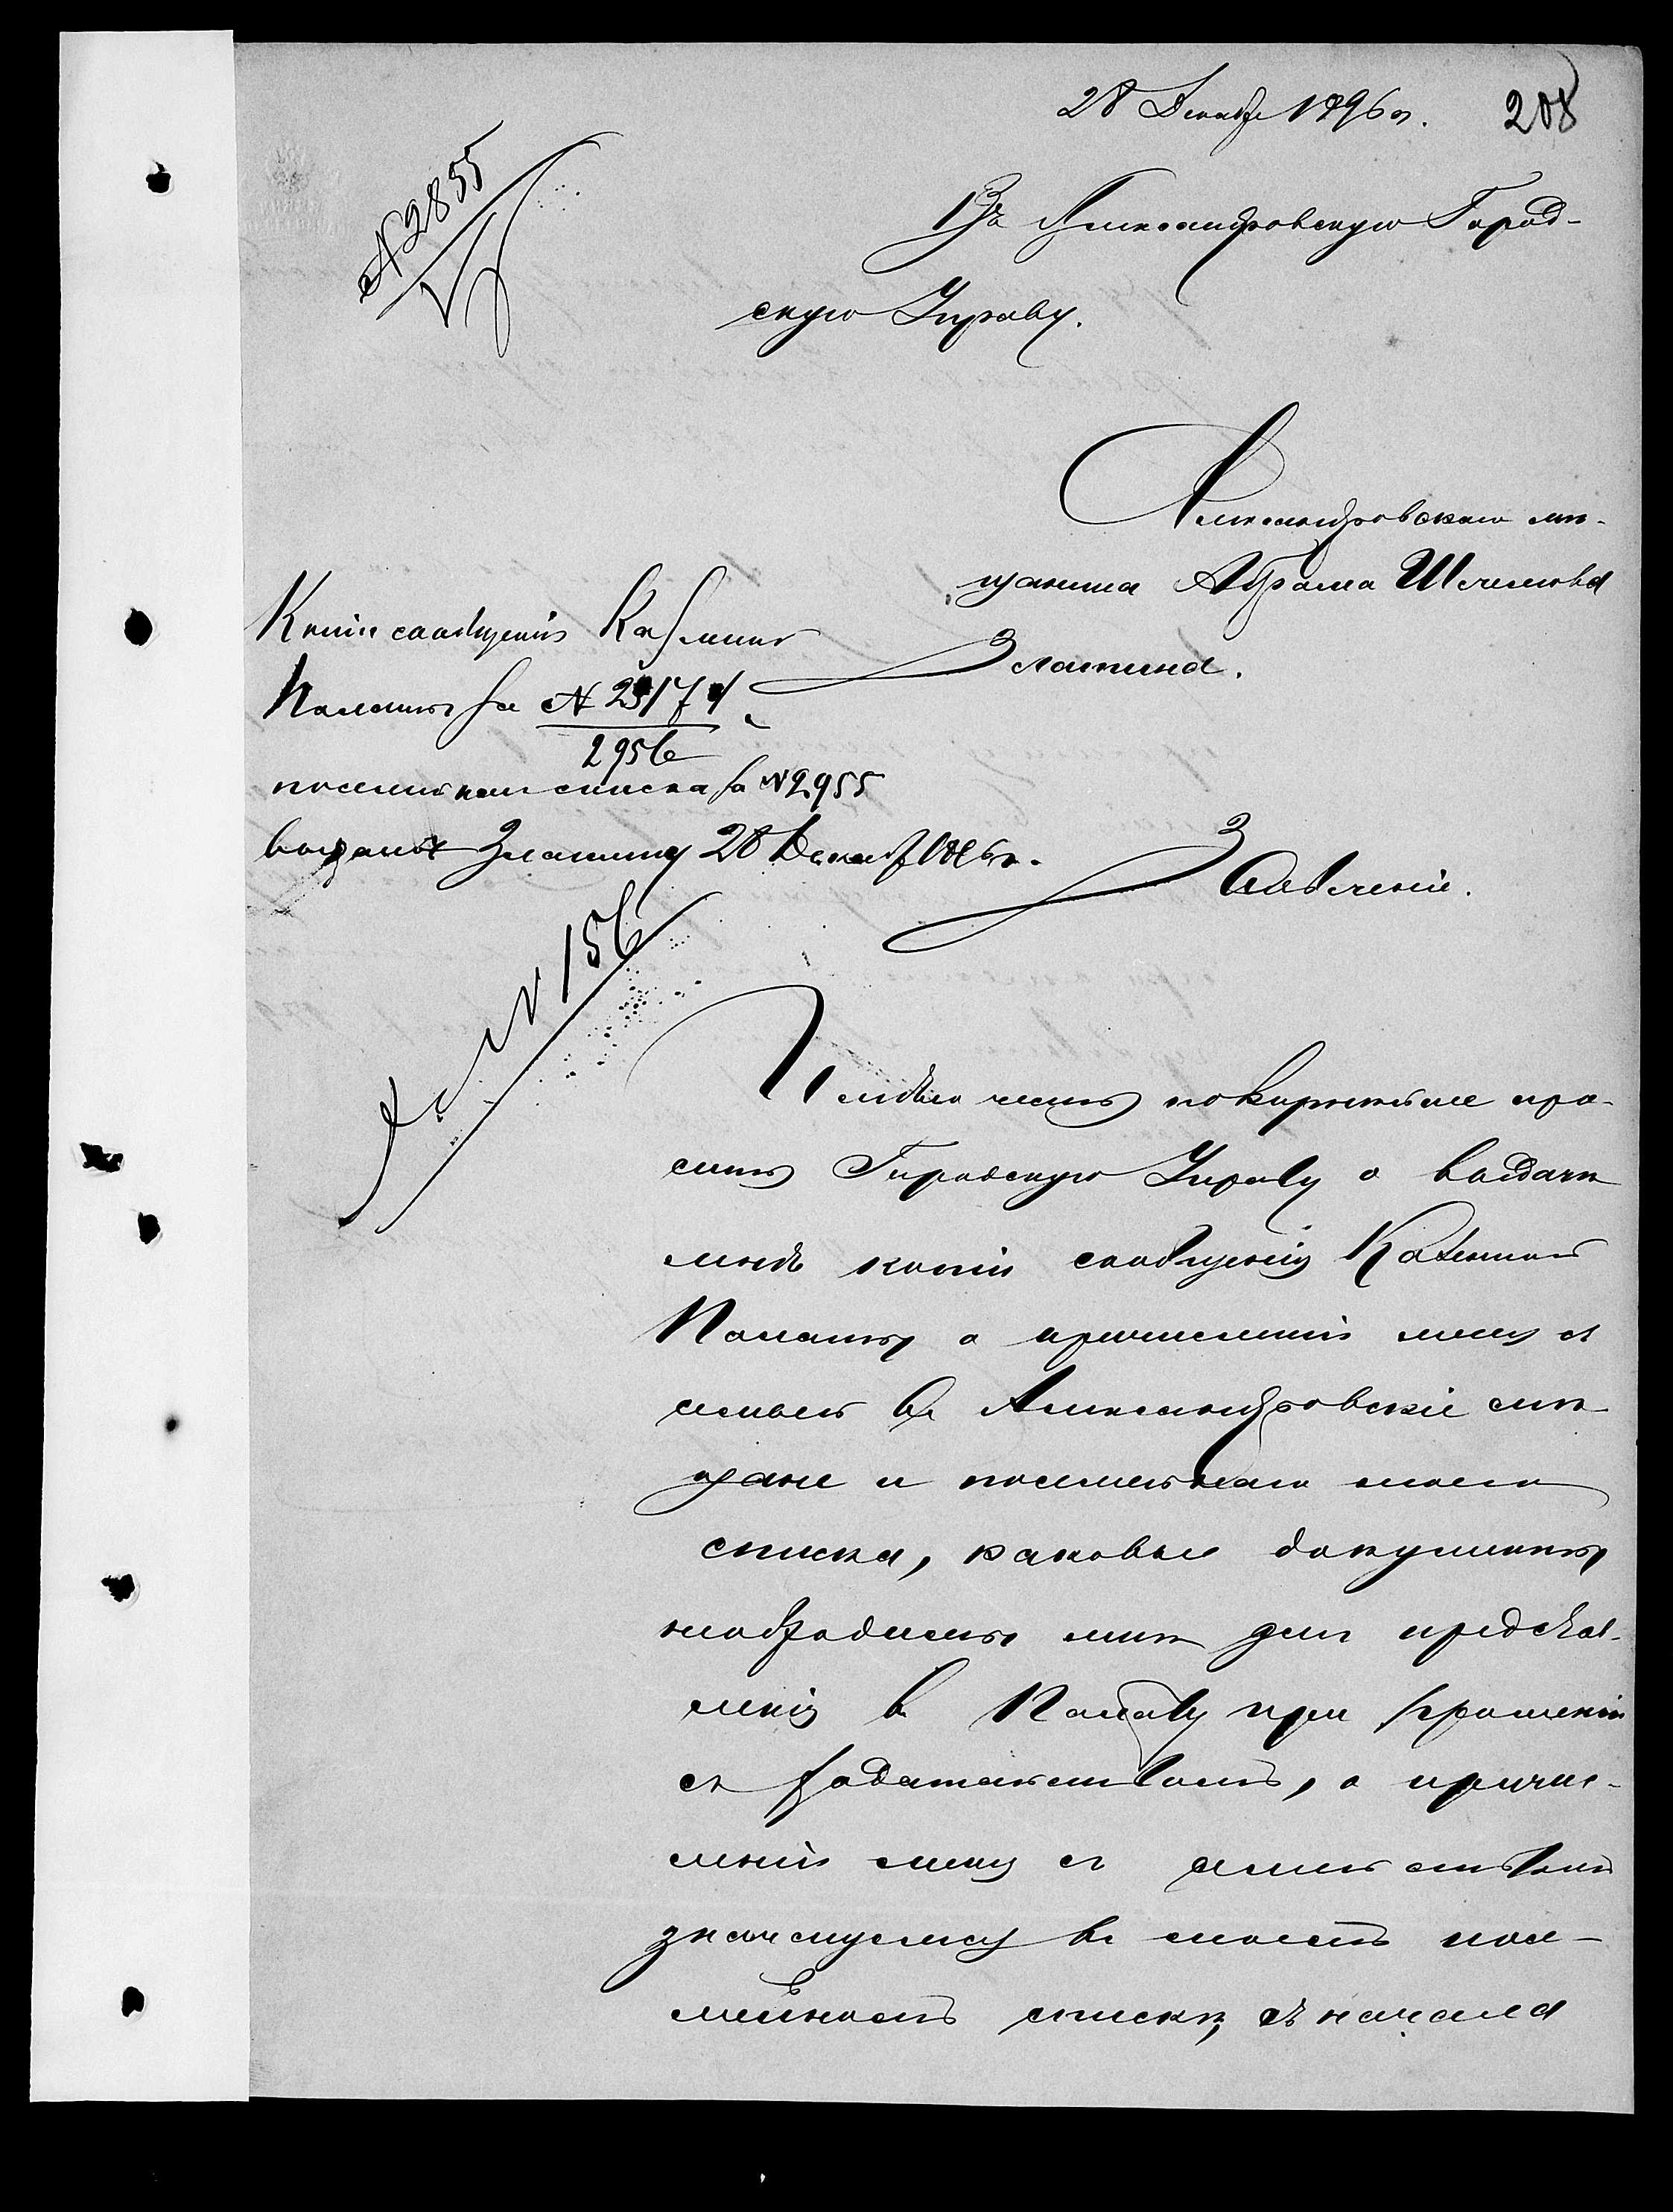 28 Декабр 1896 г. 208
№ 2855
Въ Александровскую Город-
скую Управу.
Александровскаго мѣ-
щанина Абрама Шлемова
Златина.
Копія сообщенія Казенной
Палаты за № 23174
2956
посемейнаго списка за № 2955
выданы Златину 28 Декабр 1896 г.
Заявленіе.
№ 156
Имѣю честь покорнѣйше про-
сить Городскую Управу о выдачѣ
мнѣ копіи сообщенія Казенной
Палаты о причисленіи меня съ
семьей въ Александровскіе мѣ-
щане и посемейнаго моего
списка, каковые документы
необходимы мнѣ для представ-
ленія въ Палату при прошеніи
съ ходатайствомъ, о причис-
леніи меня съ семействомъ
значущемуся въ моемъ посе-
мейномъ спискѣ, съ начала